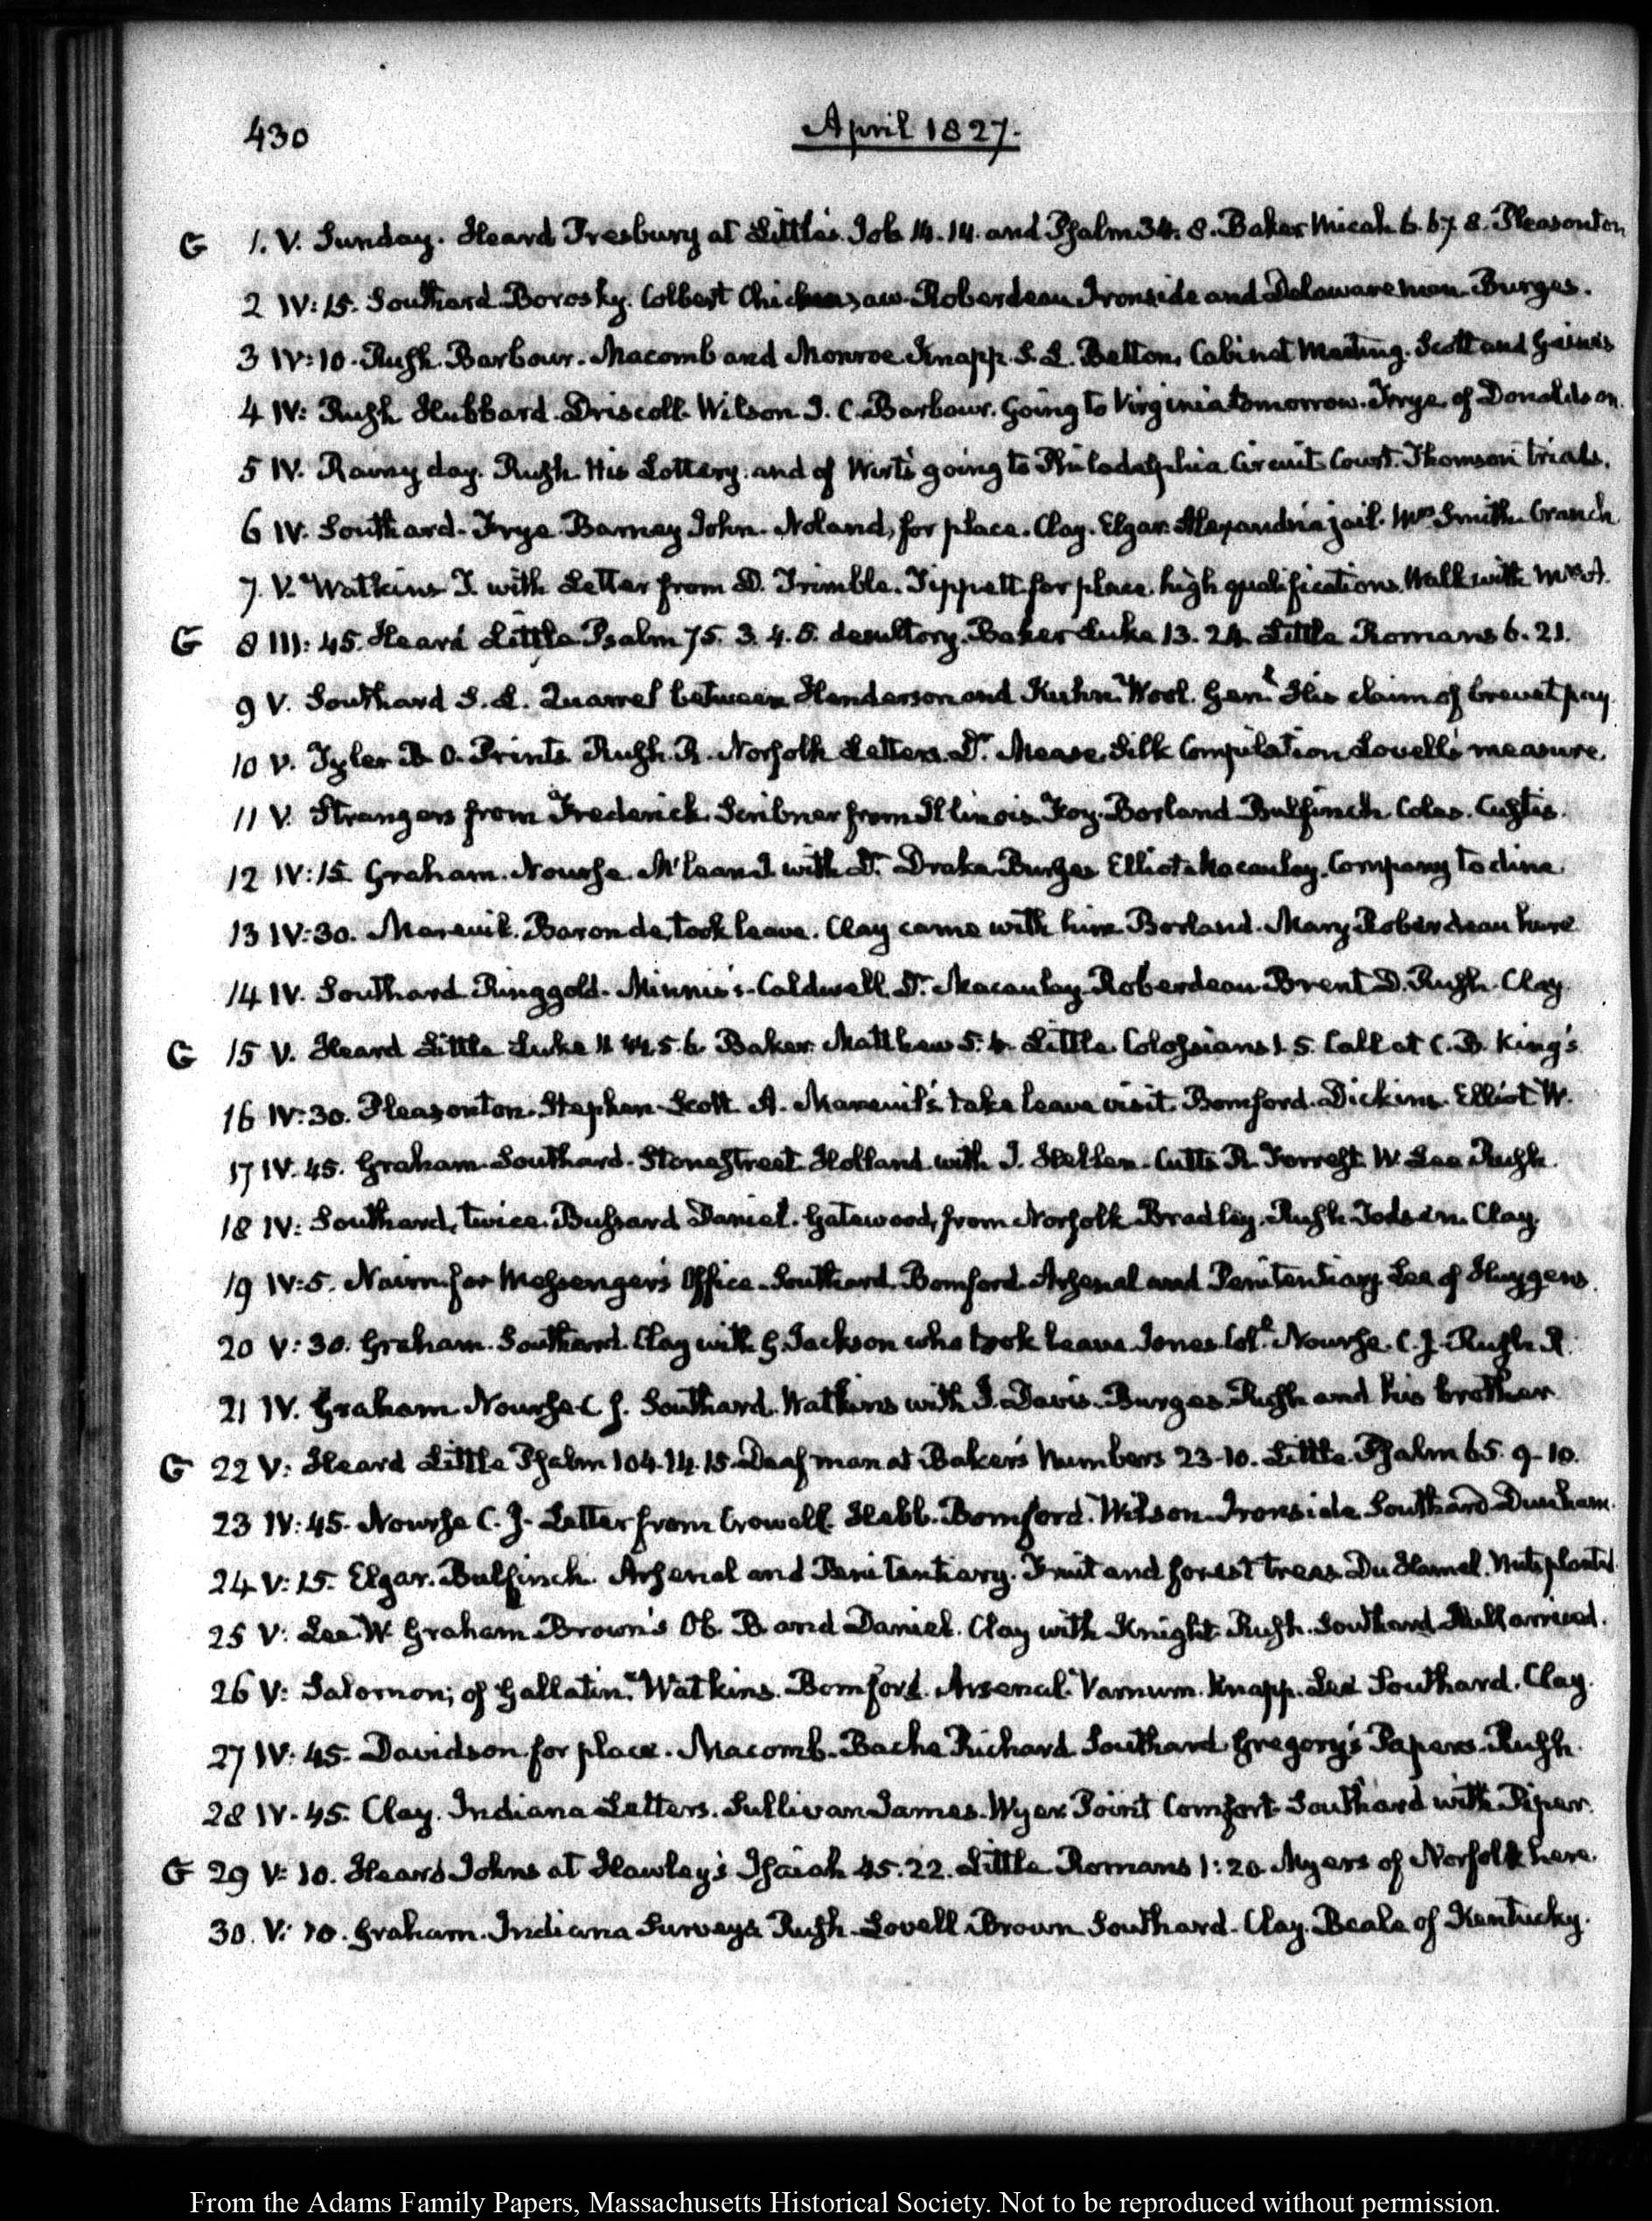 430 April 1827.
G 1. V. Sunday. Heard Tresbury at Little's. Job 14. 14. and Psalm 34. 8. Baker Micah 6. 6.7. 8. Pleasonton
2 IV: 15. Southard. Borosky. Colbert Chickasaw. Roberdeau Ironside and Delaware men. Burges.
3 IV: 10. Rush. Barbour. Macomb and Monroe. Knapp. S. L. Belton. Cabinet Meeting. Scott and Gaines
4 IV: Rush Hubbard. Driscoll. Wilson J. C. Barbour. Going to Virginia tomorrow. Frye of Donaldson.
5 IV. Rainy day. Rush. His Lottery. and of Wirt's going to Philadelphia Circuit Court. Thomson trials.
6 IV. Southard. Frye. Barney John. Noland, for place. Clay. Elgar. Alexandria jail. Mrs Smith. Cranch
7. V. Watkins T. with Letter from D. Trimble. Tippett for place. high qualifications. Walk with Mrs A.
G 8 III: 45. Heard Little Psalm 75. 3. 4. 5. desultory. Baker Luke 13. 24. Little Romans 6. 21.
9 V. Southard S. L. Quarrel between Henderson and Kuhn. Wool. Genl. His claim of brevet pay.
10 V. Tyler B. O. Prints. Rush. R. Norfolk Letters. Dr. Mease, Silk Compilation Lovell's measure.
11 V. Strangers from Frederick. Scribner from Illinois. Foy. Borland. Bulfinch. Coles. Custis.
12 IV: 15. Graham. Nourse. McLean J. with Dr. Drake. Burges Elliot. Macaulay. Company to dine
13 IV: 30. Mareuil. Baron de, took leave. Clay came with him. Borland. Mary Roberdeau here
14 IV. Southard. Ringgold. Caldwell. Dr. Macaulay. Roberdeau. Brent D. Rush. Clay.
G 15 V. Heard Little Luke 11 Baker. Matthew 5. Little. Colossians 1. 5. Call at C. B. King's
16 IV: 30. Pleasonton. Stephen. Scott A. Mareuil's take leave visit. Bomford. Dickins. Elliot W.
17 IV. 45. Graham. Southard. Stonestreet. Holland. with J. Hellen. Cutts R. Forrest. W. Lee Rush.
18 IV: Southard, twice. Bussard Daniel. Gatewood, from Norfolk. Bradley. Rush. Clay.
19 IV: 5. Nairn for Messenger's Office. Southard. Bomford. Arsenal and Penitentiary. Lee of Huygens.
20 V: 30. Graham. Southard. Clay with G. Jackson who took leave. Jones Col. Nourse. C. J. Rush R.
21 IV. Graham. Nourse C. J. Southard. Watkins with J. Davis. Burges. Rush and his brother.
G 22 V: Heard Little Psalm 104. 14. 15. Deaf man at Baker's Numbers 23-10. Little. Psalm 65. 9-10.
23 IV: 45. Nourse C. J. Letter from Crowell. Hebb. Bomford. Wilson. Ironside. Southard. Dunham.
24 V: 15. Elgar. Bulfinch. Arsenal and Penitentiary. Fruit and forest trees. Du Hamel. Nuts planted
25 V: Lee W. Graham Brown's Ob. B. and Daniel. Clay with Knight. Rush. Southard. Hull arrived.
26 V: Salomon; of Gallatin. Watkins. Bomford. Arsenal. Varnum. Knapp. Lee Southard. Clay.
27 IV: 45. Davidson for place. Macomb. Bache Richard. Southard. Gregory's Papers. Rush.
28 IV. 45. Clay. Indiana Letters. Sullivan James. Wyer. Point Comfort. Southard with Piper.
G 29 V: 10. Heard Johns at Hawley's Isaiah 45. 22. Little. Romans 1: 20. Myers of Norfolk here.
30. V: 10. Graham. Indiana Surveys. Rush. Lovell Brown. Southard. Clay. Beale of Kentucky.
From the Adams Family Papers, Massachusetts Historical Society. Not to be reproduced without permission.